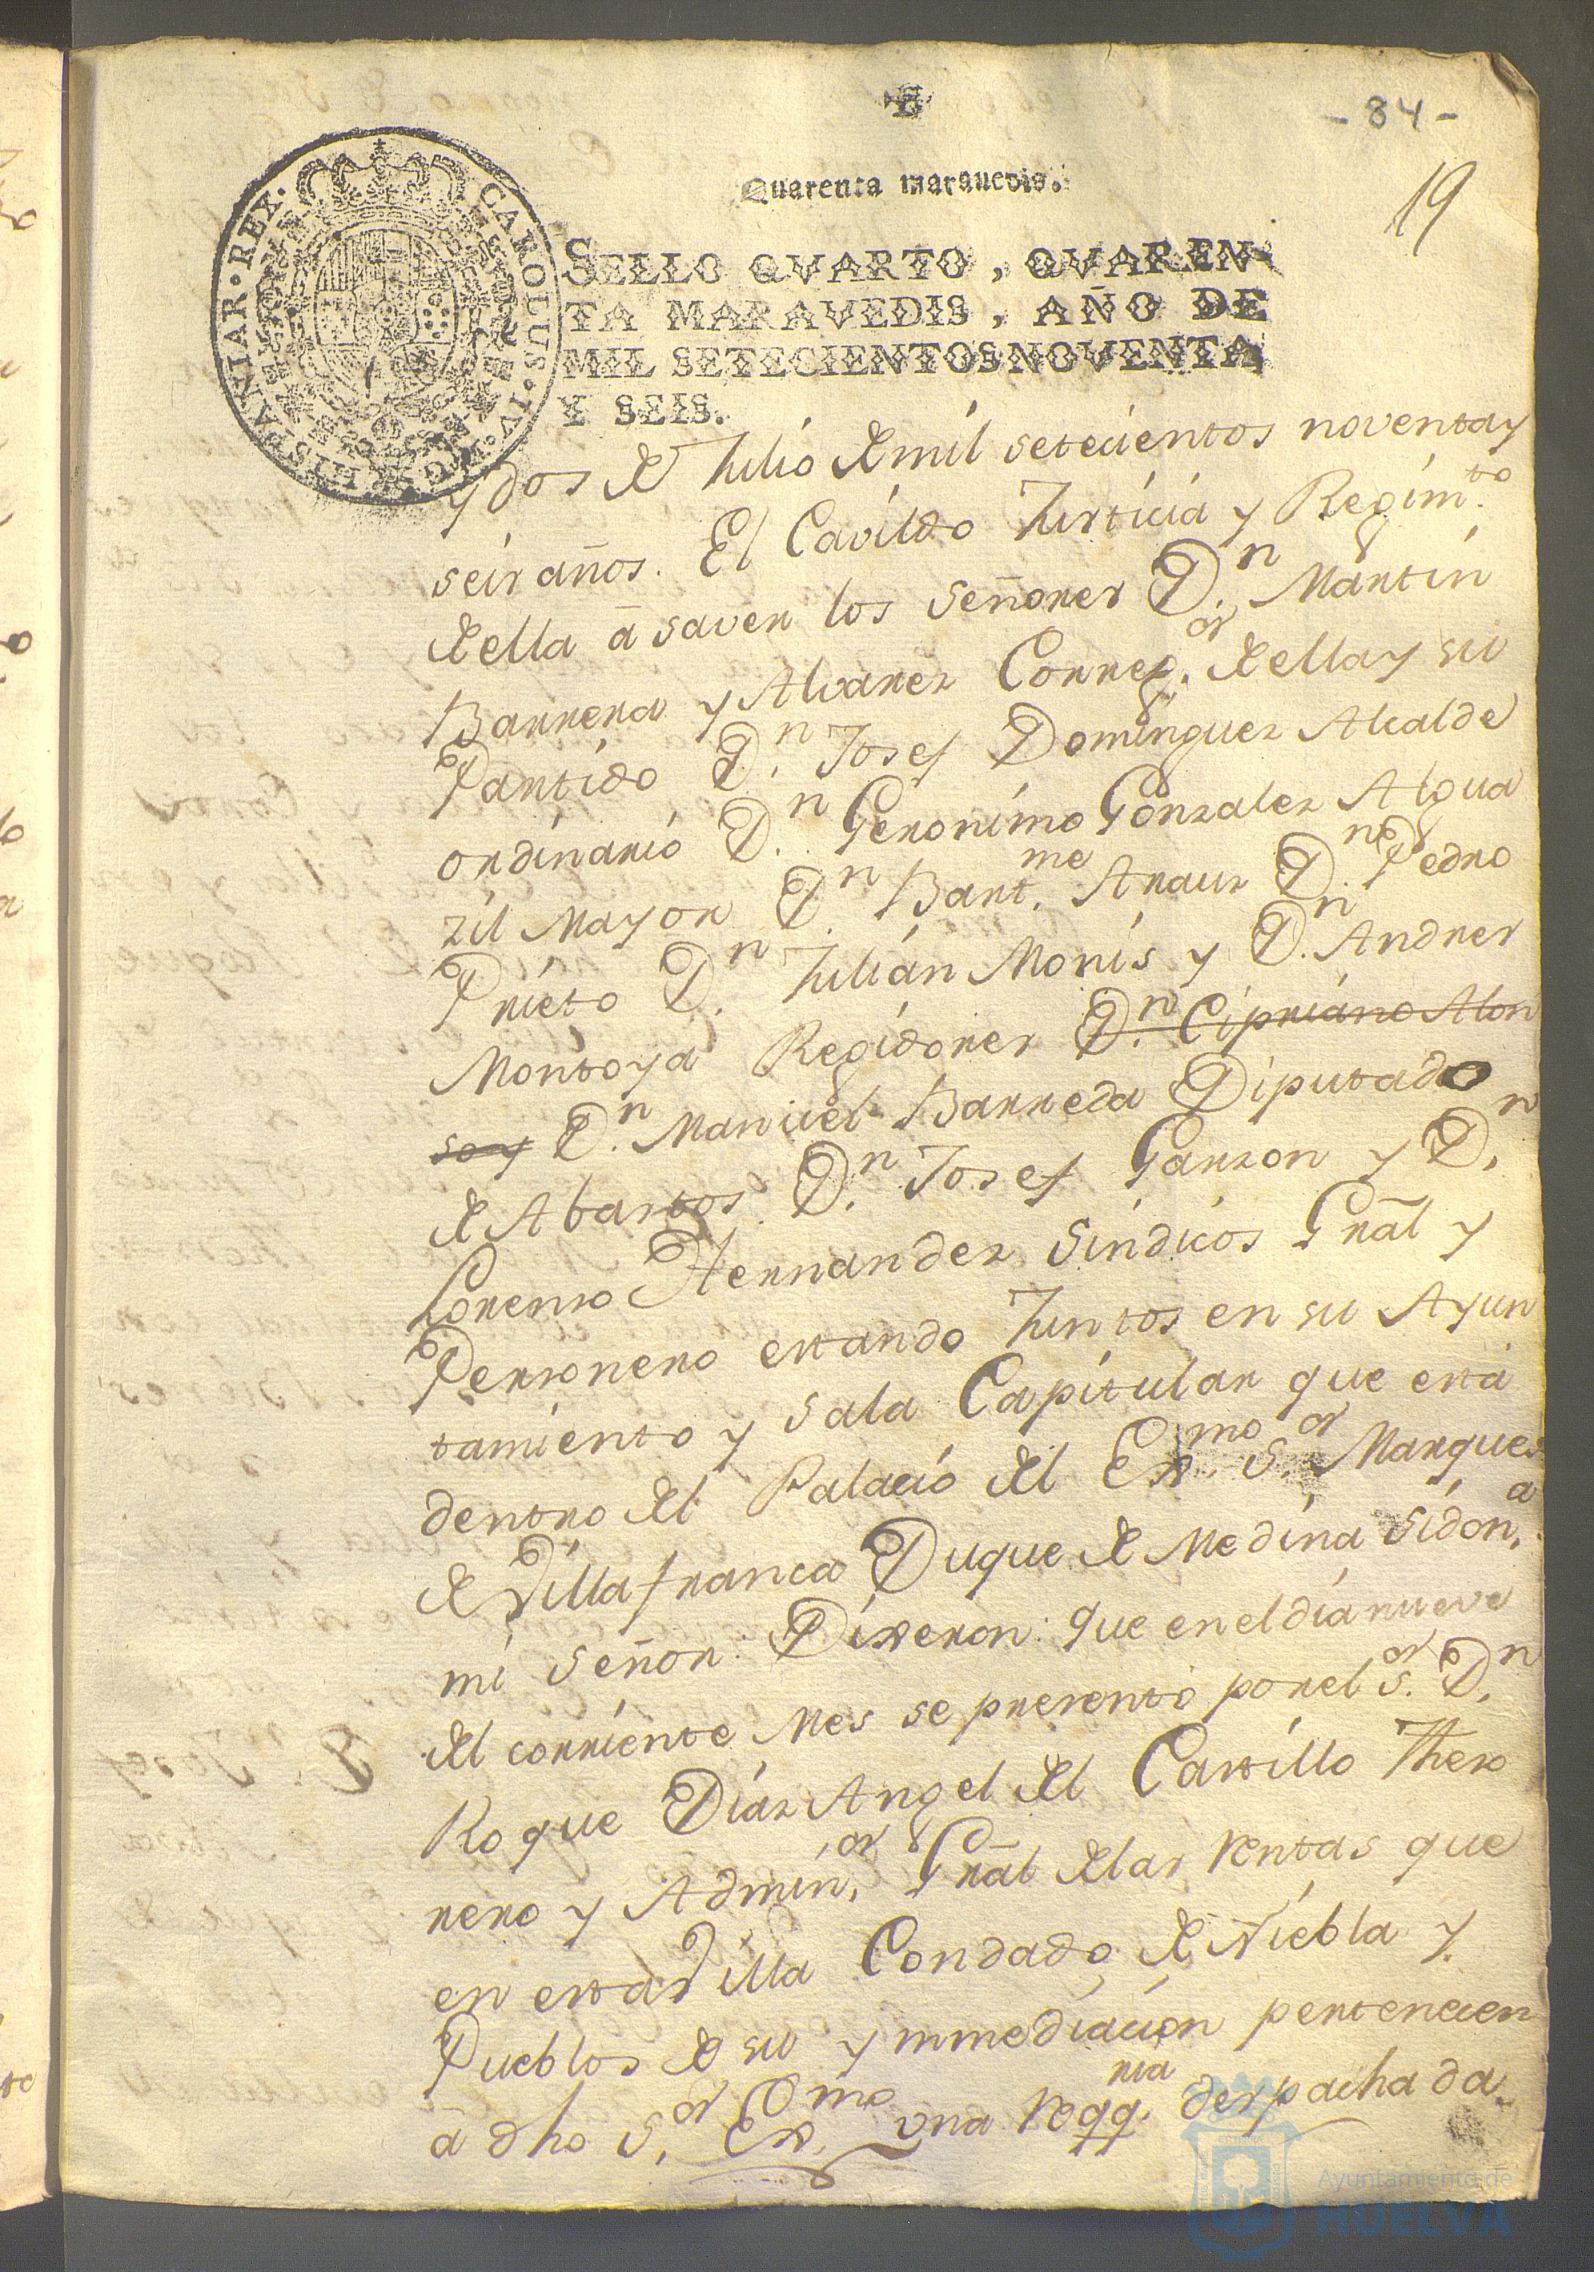 - 84 -
19
Quarenta maravedis.
HISPANIAR·REX· CAROLUS·IV·D·G·
SELLO QVARTO, QVAREN
TA MARAVEDIS, AÑO DE
MIL SETECIENTOS NOVENTA
Y SEIS.
y dos de Julio de mil setecientos noventa y
seis años. El Cavildo Justicia y Regim.to
de ella â saver los Señores D.n Martin
Barrera y Alvarez Correg.or de ella y su
Partido D.n Josef Dominguez Alcalde
ordinario D.n Geronimo Gonzalez Algua
zil Mayor D.n Bart.me Araus D.n Pedro
Prieto D.n Julián Monis y D.n Andres
Montoya Regidores D.n Cipriano Alon
so y D.n Manuel Barreda Diputado
de Abastos D.n Josef Garzon y D.n
Lorenzo Hernandez Sindicos Grãl y
Personero estando Juntos en su Ayun
tamiento y Sala Capitular que está
dentro del Palacio del Ex.mo S.or Marques
de Villafranca Duque de Medina Sidon.a
mi Señor. Dixeron: Que en el dia nueve
del corriente Mes se presentó por el S.or D.n
Roque Diaz Angel del Castillo Theso
rero y Admin.or Grãl de las rentas que
en esta Villa Condado de Niebla y
Pueblos de su ymmediacion pertenecen
â dho S.or Ex.mo una reqq.ria despachada
Ayuntamiento de
HUELVA